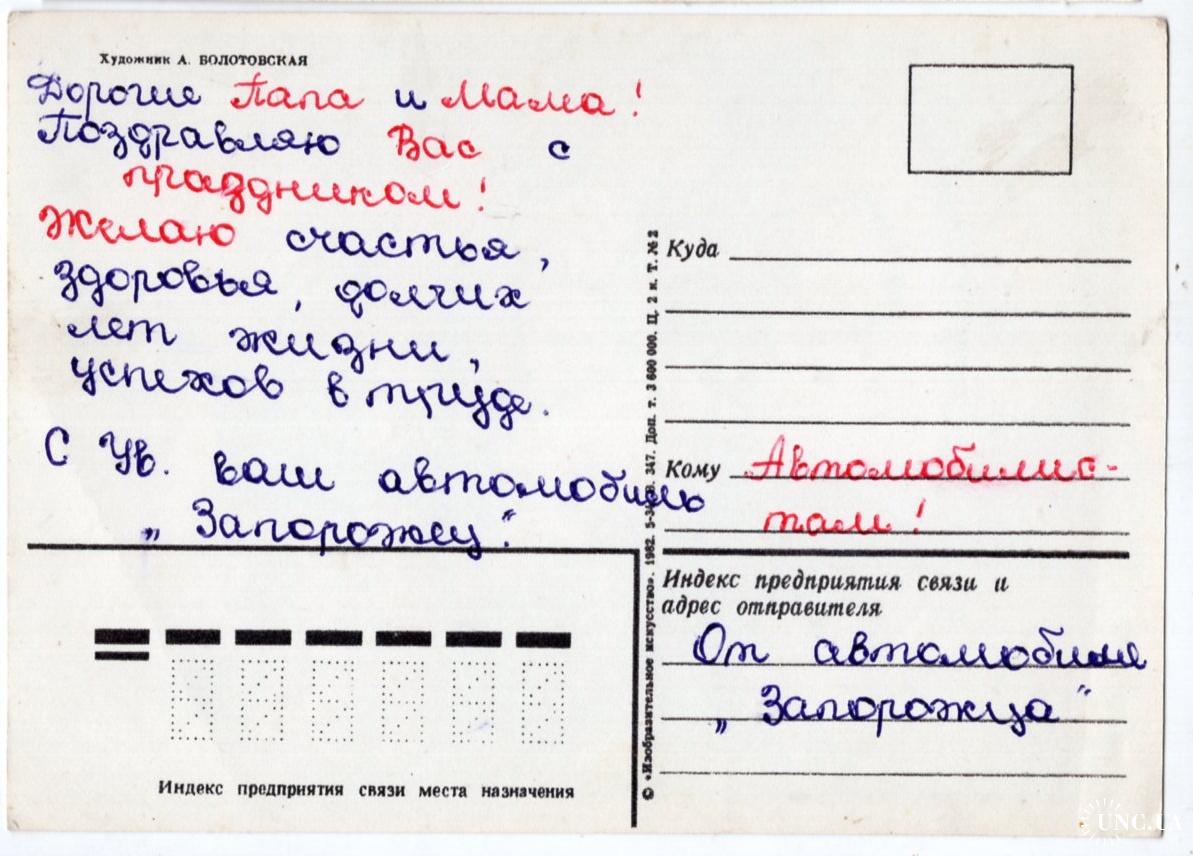 Художник А. БОЛОТОВСКАЯ
Дорогие Папа и Мама!
Поздравляю Вас с
праздником!
Желаю счастья,
здоровья, долгих
лет жизни,
успехов в труде.
С Ув. ваш автомобиль
„Запорожец".
Индекс предприятия связи места назначения
© «Изобразительное искусство». 1982. 347. Доп. т. 3 600 000. Ц. 2 к. Т. № 2
Куда
Кому Автомобилис-
там!
Индекс предприятия связи и
адрес отправителя
От автомобиля
„Запорожца"
UNC.UA